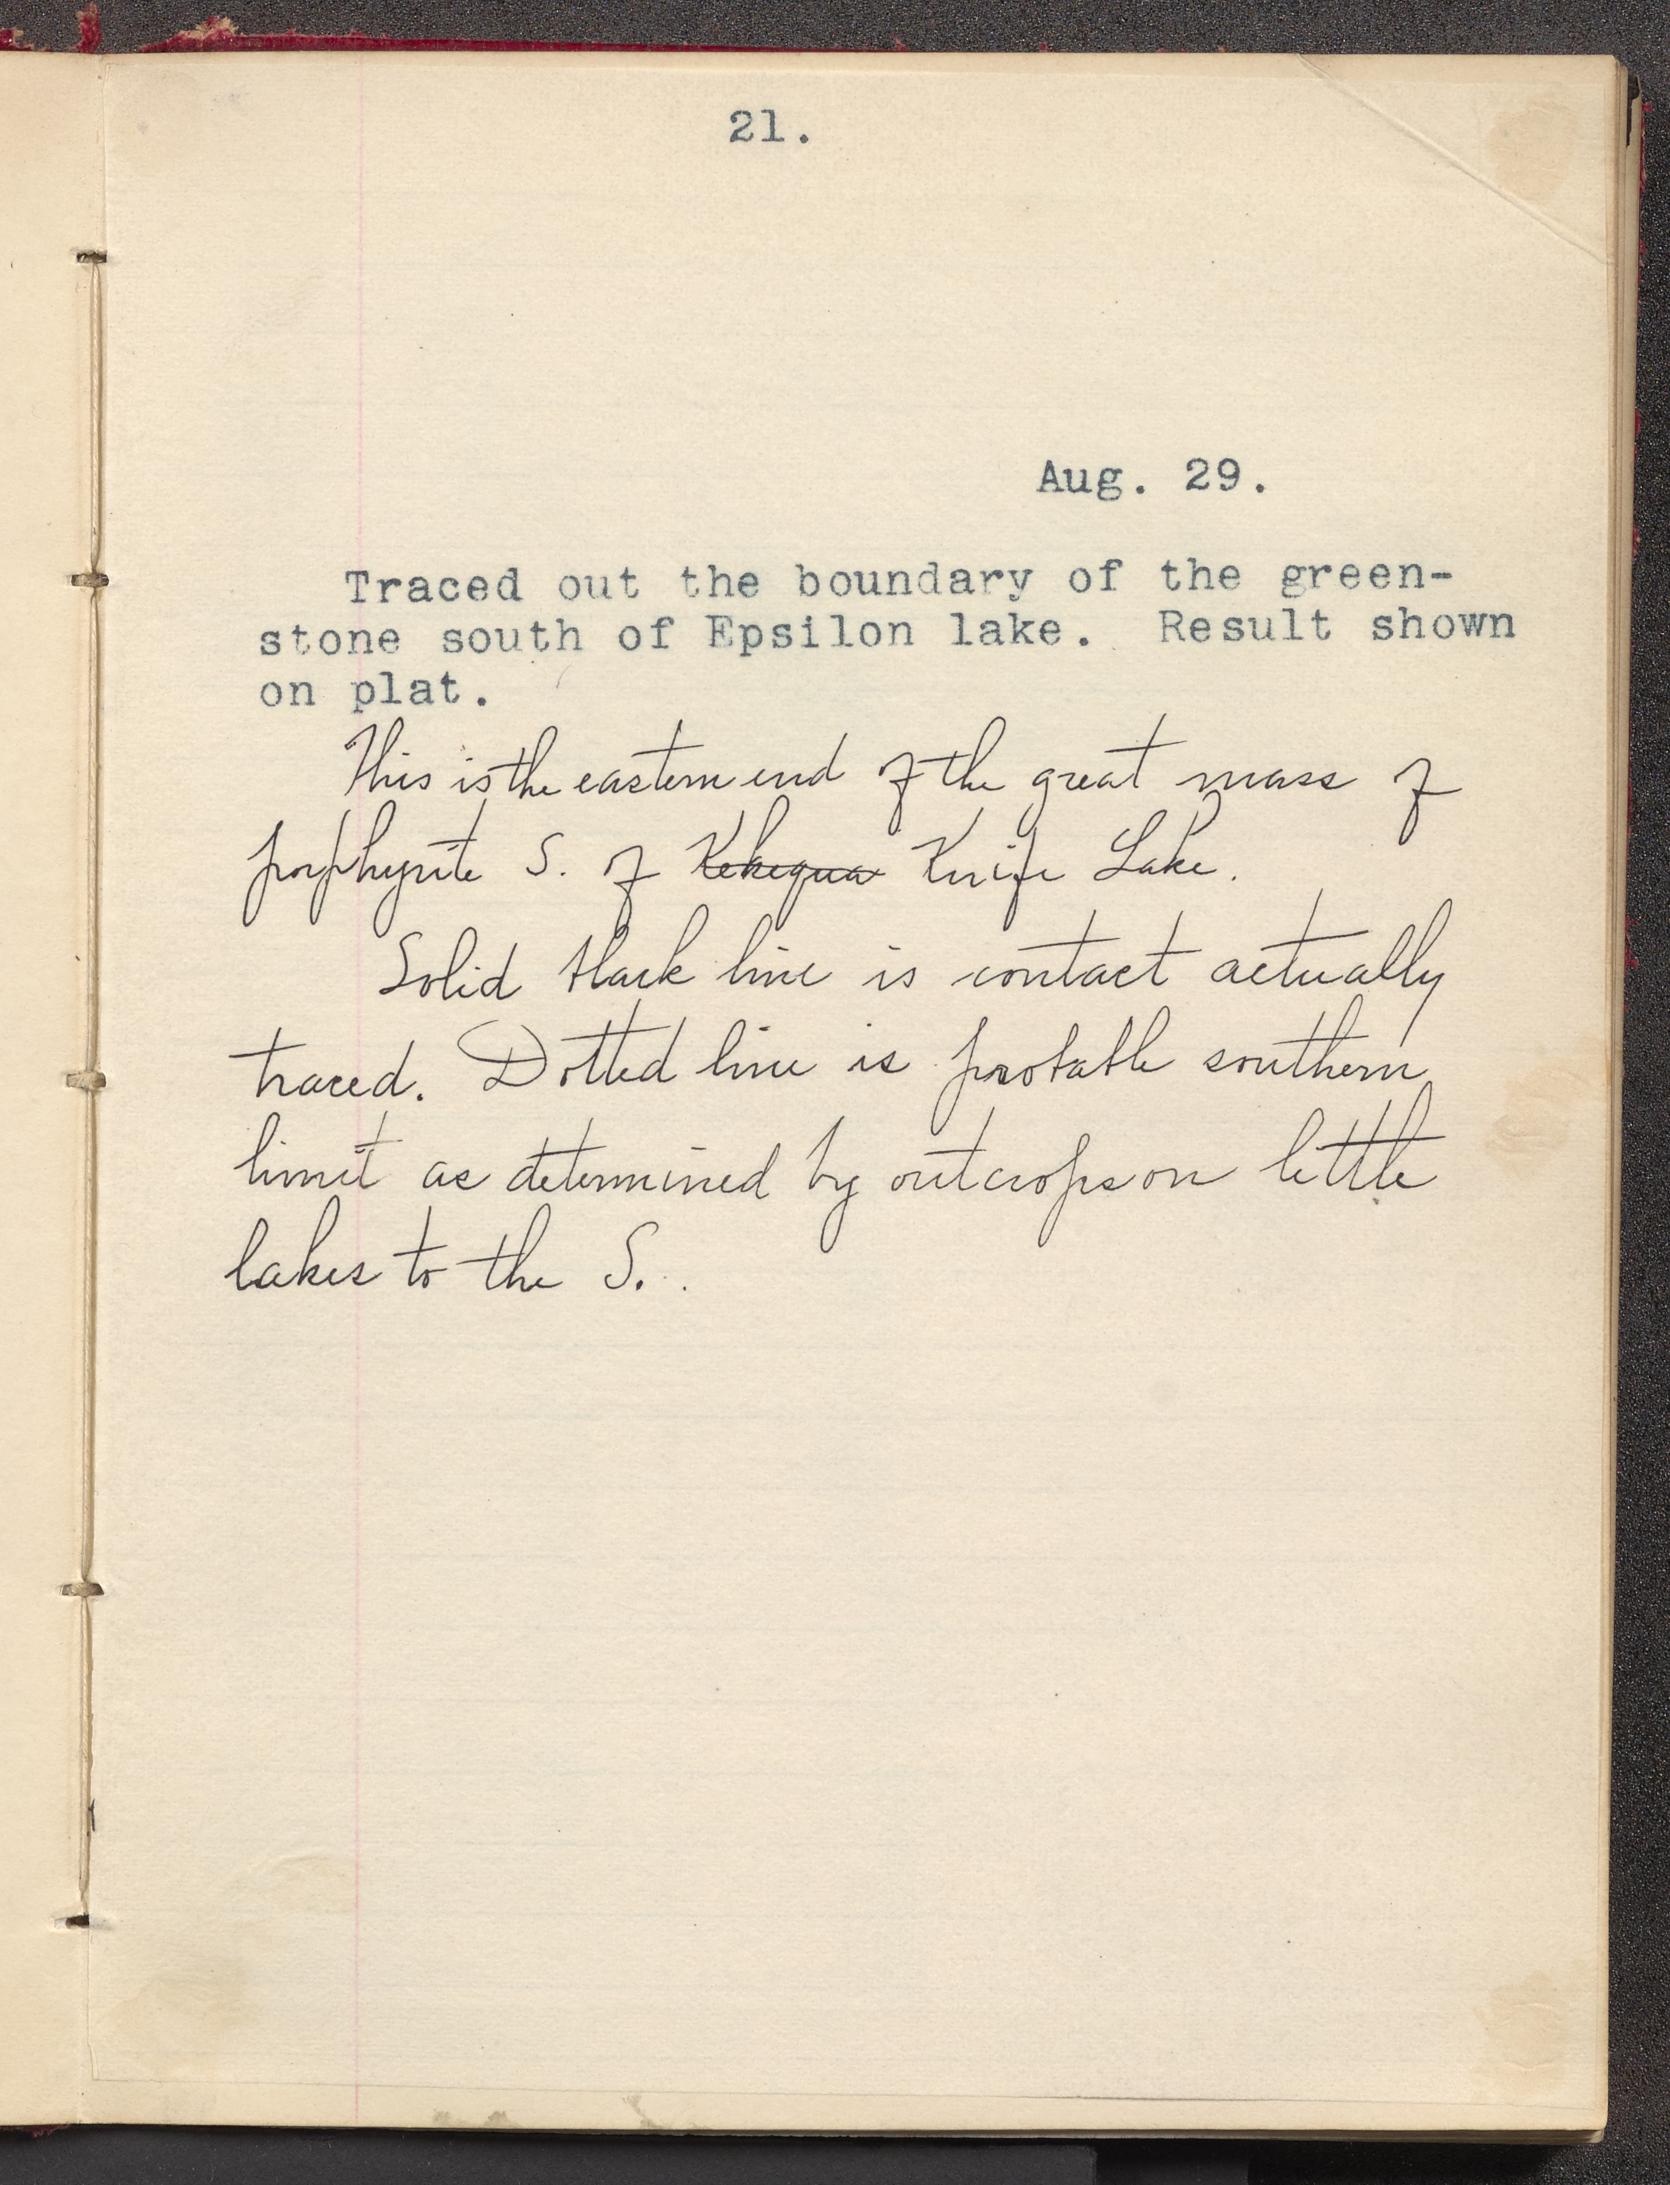 21.
Aug. 29.
Traced out the boundary of the green-
stone south of Epsilon lake. Result shown
on plat.
This is the eastern end of the great mass of
porphyrite S. of Kekequa Knife Lake.
Solid black line is contact actually
traced. Dotted line is probable southern
limit as determined by outcrops on little
lakes to the S.